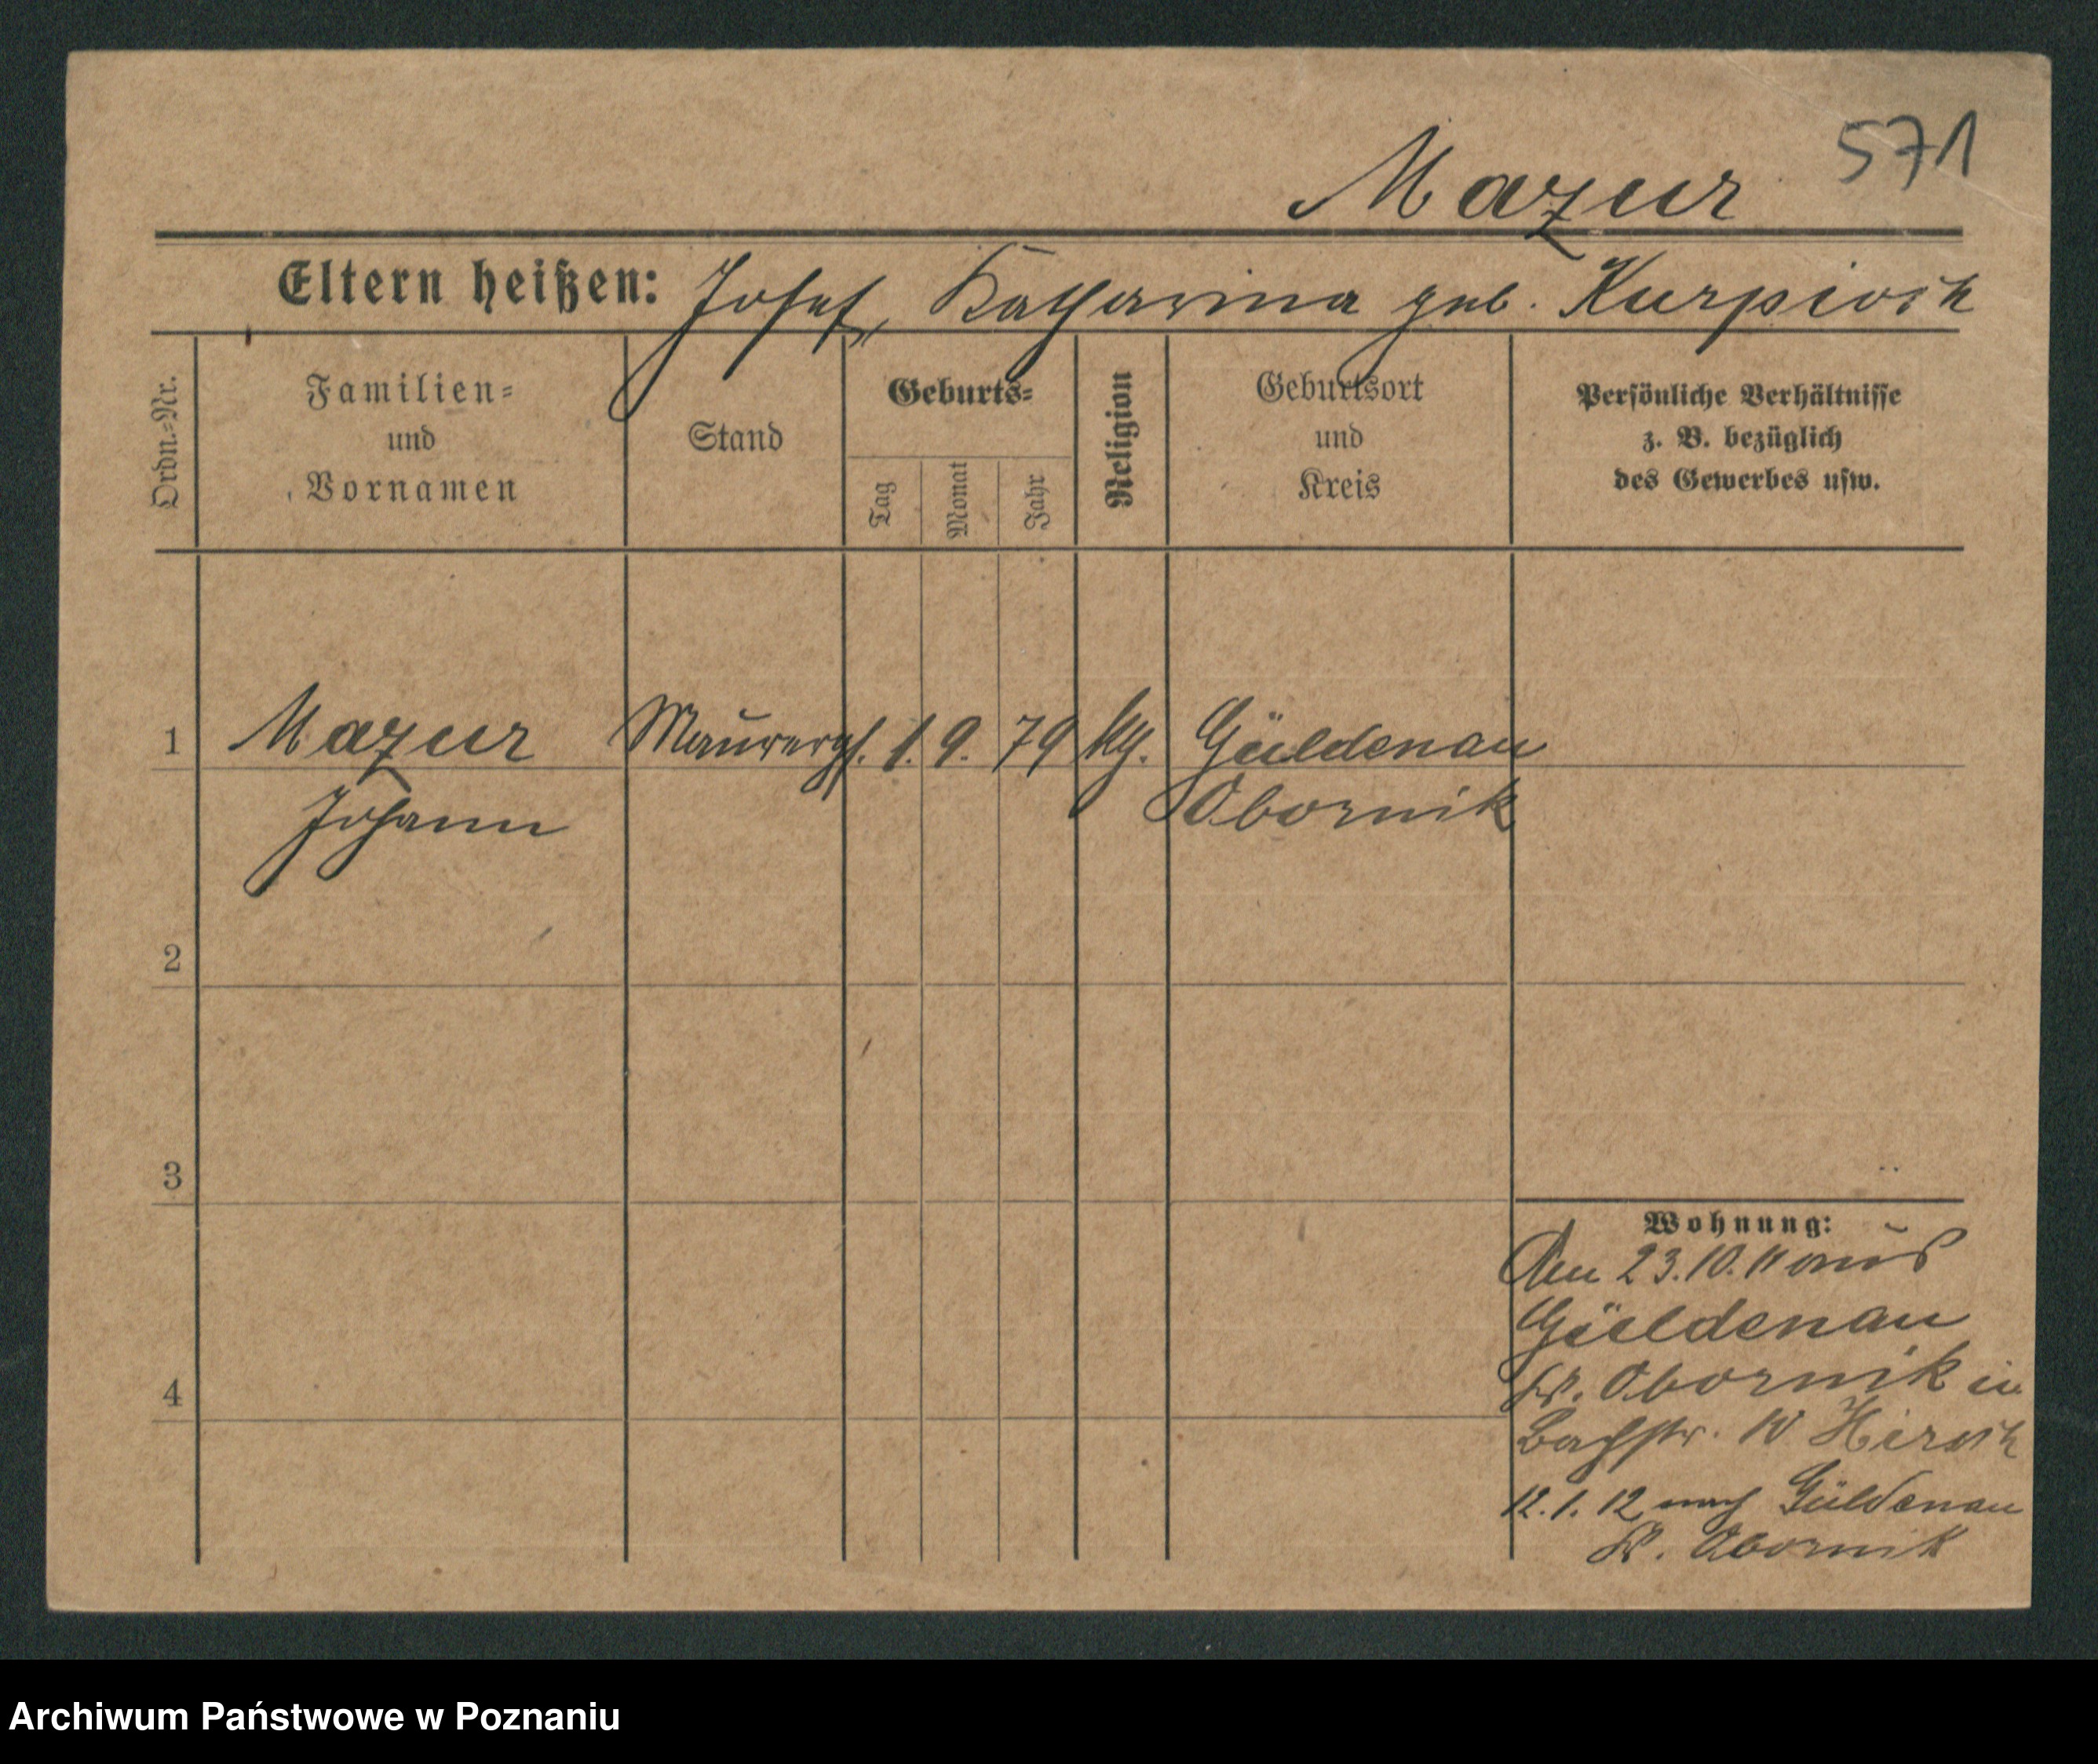 571
Mazur
Eltern heißen: Josef, Katharina geb.
Ordn.=Nr.
Familien=
und
Vornamen
Stand
Geburts=
Tag
Monat
Jahr
Religion
Geburtsort
und
Kreis
Persönliche Verhältnisse
z. B. bezüglich
des Gewerbes usw.
1 Mazur Maurerges. 1. 9. 79 kth. Güldenau
Johann Obornik
2
3
4
Wohnung:
Den 23.10.11 aus
Güldenau
Kr. Obornik in
Bachstr. 10
12.1.12 nach Güldenau
Kr. Obornik
Archiwum Państwowe w Poznaniu